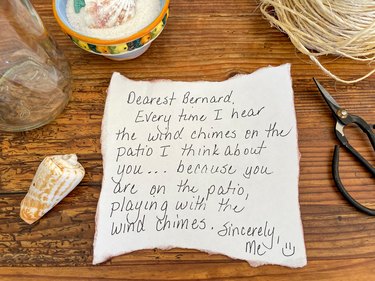 Dearest Bernard,
Every time I hear
the wind chimes on the
patio I think about
you... because you
are on the patio,
playing with the
wind chimes. Sincerely,
Me